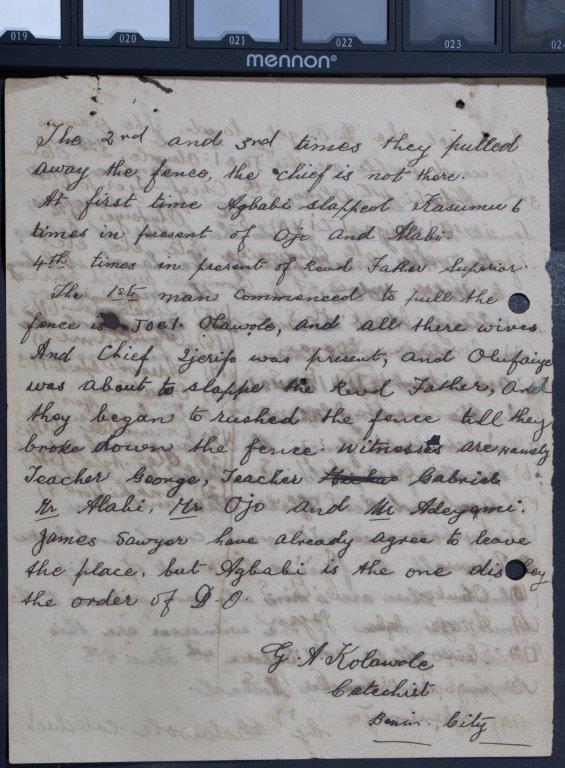 019 020 021 022 023 024
mennon®
The 2nd and 3rd times they pulled
away the fence, the chief is not there.
At first time Agbabi slapped Kasumu 6
times in present of Ojo and Alabi.
4th times in present of Revd Father Superior.
The 1st man commenced to pull the
fence is Joel Olawole, and all there wives
And Chief was present, and Olufaiye
was about to slappe the Revd Father, and
they began to rushed the fence till they
broke down the fence. Witnesses are namely
Teacher George, Teacher Gabriel
Mr Alabi, Mr Ojo and Mr Adeyemi.
James Sawyer have already agree to leave
the place, but Agbabi is the one disobey
the order of D.O.
G. A. Kolawole
Catechist
Benin City